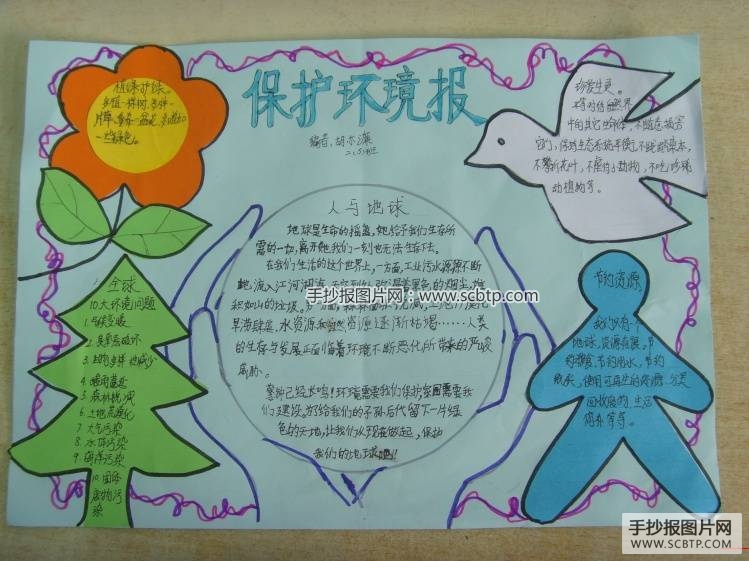 保护环境报
编者:胡亦濂
植绿护绿。
一些绿色。
珍爱生灵。
善待自然界
中的其它生命体,不随意捕害
它们,保持生态系统平衡,不践踏草木,
不攀折花叶,不虐待小动物,不吃珍稀
动植物等。
人与地球
地球是生命的摇篮,她给予我们生存所
需的一切,离开她我们一刻也无法生存下去。
在我们生活的这个世界上,一方面,工业污水源源不断
地流入江河湖海,
积如山的垃圾。
旱涝肆虐、水资源和自然资源逐渐枯竭……人类
的生存与发展正面临着环境不断恶化所带来的严峻
威胁。
警钟已经长鸣!环境需要我们保护,家园需要我
们建设。为了给我们的子孙后代留下一片绿
色的天地,让我们从现在做起,保护
我们的地球吧!
全球
10大环境问题
1. 气候变暖
2. 臭氧层破坏
3. 生物多样性减少
4. 酸雨蔓延
5. 森林锐减
6. 土地荒漠化
7. 大气污染
8. 水体污染
9. 海洋污染
10. 固体
废物污
染
节约资源
我们只有一个
地球,资源有限,节
约粮食,节约用水,节约
纸张,使用可再生的资源,分类
回收废物,生活
简朴等等。
手抄报图片网:www.scbtp.com
手抄报图片网
WWW.SCBTP.COM